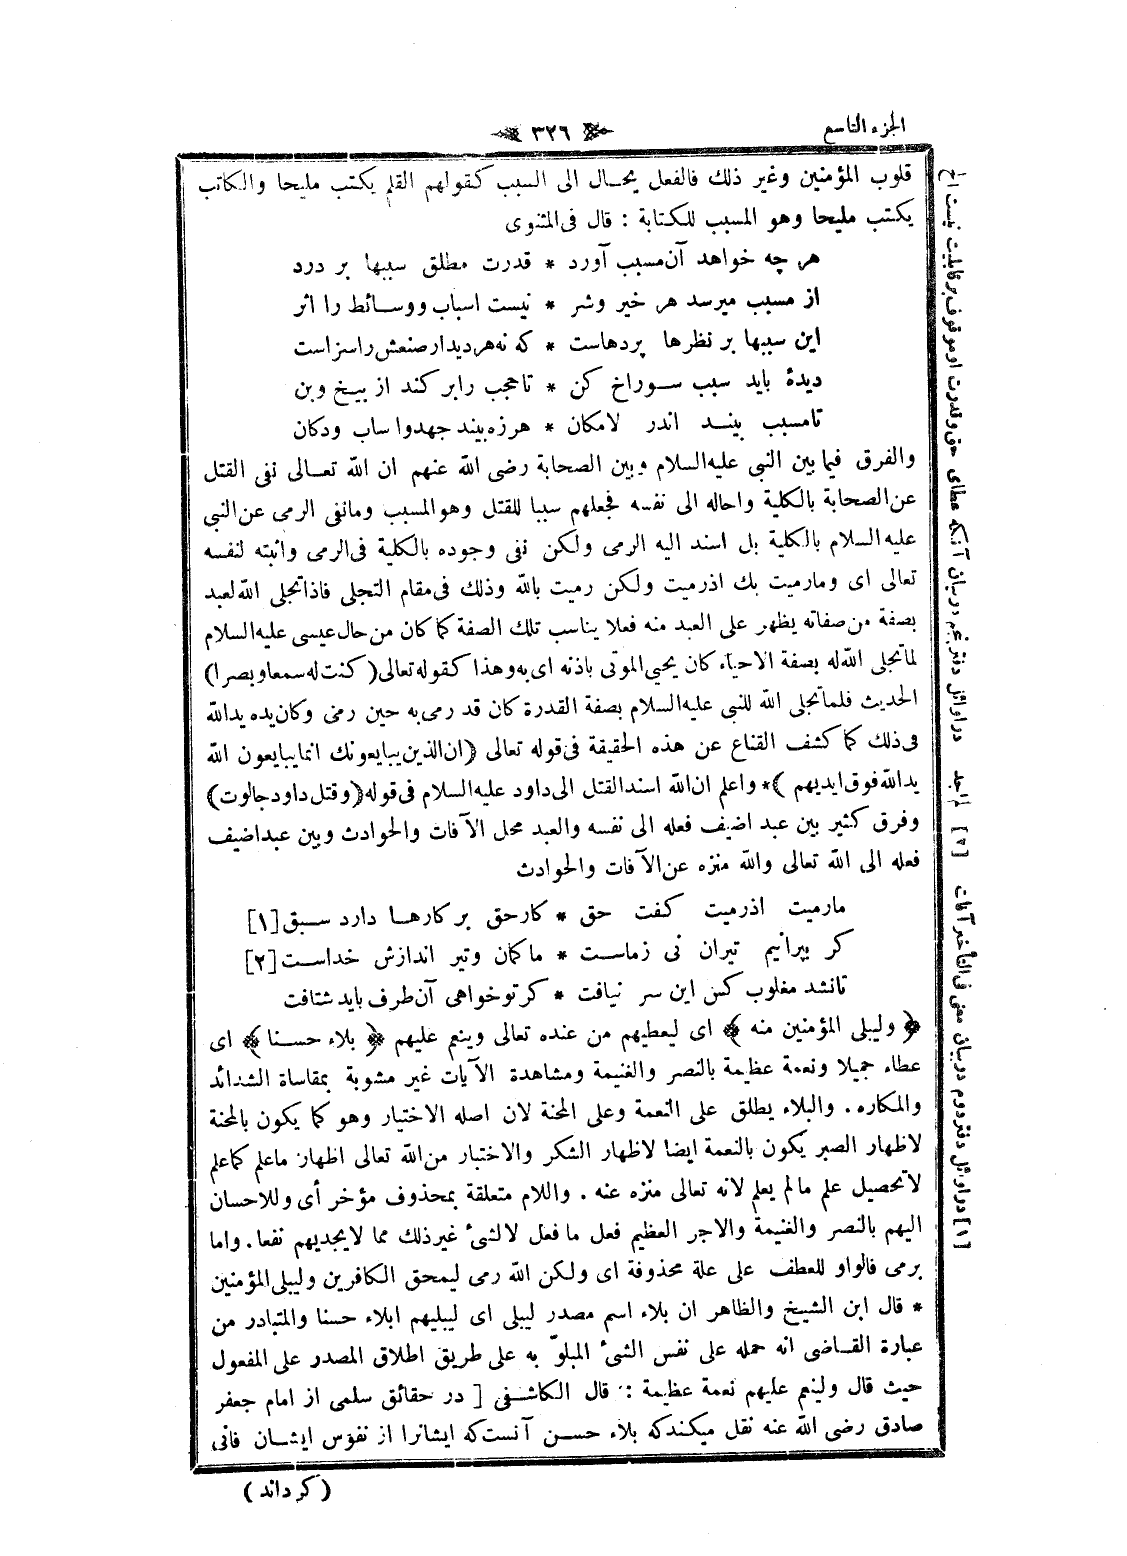 الجزء التاسع
٣٢٦
قلوب المؤمنين وغير ذلك فالفعل يحـال الى السبب كقولهم القلم يكتب مليحا والكاتب
يكتب مليحا وهو المسبب للكتابة : قال فى المثنوى
هر چه خواهد آن مسبب آورد * قدرت مطلق سببها بر درد
از مسبب ميرسد هر خير وشر * نيست اسباب ووسائط را اثر
اين سببها بر نظرها پردهاست * كه نه هر ديدار صنعش را سزاست
ديدۀ بايد سبب سوراخ كن * تا حجب را بر كند از بيخ وبن
تا مسبب بيند اندر لامكان * هرزه بيند جهد واساب ودكان
والفرق فيما بين النبى عليه السلام وبين الصحابة رضى الله عنهم ان الله تعالى نفى القتل
عن الصحابة بالكلية واحاله الى نفسه فجعلهم سببا للقتل وهو المسبب ومانفى الرمى عن النبى
عليه السلام بالكلية بل اسند اليه الرمى ولكن نفى وجوده بالكلية فى الرمى واثبته لنفسه
تعالى اى ومارميت بك اذرميت ولكن رميت بالله وذلك فى مقام التجلى فاذا تجلى الله لعبد
بصفة من صفاته يظهر على العبد منه فعلا يناسب تلك الصفة كما كان من حال عيسى عليه السلام
لما تجلى الله له بصفة الاحياء كان يحيى الموتى باذنه اى به وهذا كقوله تعالى ( كنت له سمعا وبصرا )
الحديث فلما تجلى الله للنبى عليه السلام بصفة القدرة كان قد رمى به حين رمى وكان يده يد الله
فى ذلك كما كشف القناع عن هذه الحقيقة فى قوله تعالى ( ان الذين يبايعونك انما يبايعون الله
يد الله فوق ايديهم )* واعلم ان الله اسند القتل الى داود عليه السلام فى قوله ( وقتل داود جالوت )
وفرق كثير بين عبد اضيف فعله الى نفسه والعبد محل الآفات والحوادث وبين عبد اضيف
فعله الى الله تعالى والله منزه عن الآفات والحوادث
مارميت اذرميت كفت حق * كار حق بر كارها دارد سبق [١]
كر بپرانيم تيران نى زماست * ما كمان وتير اندازش خداست [٢]
تا نشد مغلوب كس اين سر نيافت * كر تو خواهى آن طرف بايد شتافت
﴿ وليبلى المؤمنين منه ﴾ اى ليعطيهم من عنده تعالى وينعم عليهم ﴿ بلاء حسنا ﴾ اى
عطاء جميلا ونعمة عظيمة بالنصر والغنيمة ومشاهدة الآيات غير مشوبة بمقاساة الشدائد
والمكاره. والبلاء يطلق على النعمة وعلى المحنة لان اصله الاختيار وهو كما يكون بالمحنة
لاظهار الصبر يكون بالنعمة ايضا لاظهار الشكر والاختبار من الله تعالى اظهار ما علم كما علم
لا تحصيل علم مالم يعلم لانه تعالى منزه عنه . واللام متعلقة بمحذوف مؤخر أى وللاحسان
اليهم بالنصر والغنيمة والاجر العظيم فعل ما فعل لا لشىء غير ذلك مما لا يجديهم نفعا. واما
برمى فالواو للعطف على علة محذوفة اى ولكن الله رمى ليمحق الكافرين وليبلى المؤمنين
* قال ابن الشيخ والظاهر ان بلاء اسم مصدر ليبلى اى ليبليهم ابلاء حسنا والمتبادر من
عبارة القاضى انه حمله على نفس الشىء المبلوّ به على طريق اطلاق المصدر على المفعول
حيث قال ولينعم عليهم نعمة عظيمة : قال الكاشفى [ در حقائق سلمى از امام جعفر
صادق رضى الله عنه نقل ميكند كه بلاء حسن آنست كه ايشانرا از نفوس ايشان فانى
( كرداند )
[١] در اوائل دفتر دوم در بيان معنى فى التأخير آفات [٢] لم اجد در اوائل دفتر پنجم در بيان آنكه عطاى حق وقدرت او موقوف بر قابليت نيست الخ